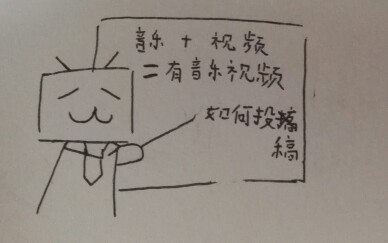 音乐 + 视频
= 有音乐视频
如何投稿
稿